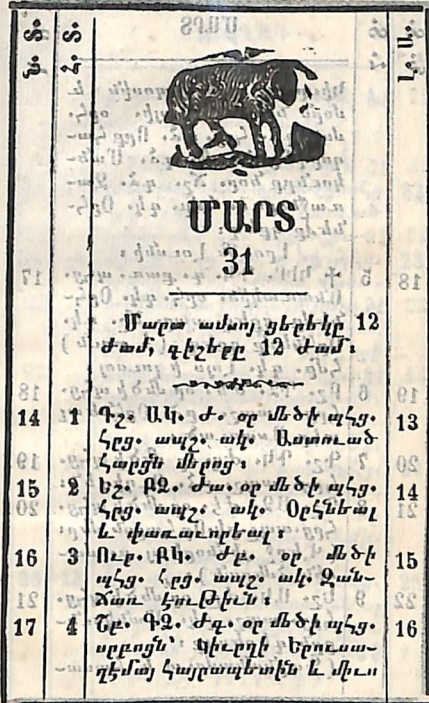 Ն. Տ.
Հ. Տ.
Լ. Ա.
ՄԱՐՏ
31
Մարտ ամսոյ ցերեկը 12
ժամ, գիշերը 12 ժամ։
14 1 Գշ. ԱԿ. Ժ. օր մեծի պհց. 13
Հրց. ապշ. ակ. Աստուած
Հարցն մերոց։
15 2 Եշ. ԲՁ. Ժա. օր մեծի պհց. 14
Հրց. ապշ. ակ. Օրհնեալ
և փառաւորեալ։
16 3 Ուր. ԲԿ. Ժբ. օր մեծի 15
պհց. Հրց. ապշ. ակ. Զան-
ճառ էութիւն։
17 4 Շբ. ԳՁ. Ժգ. օր մեծի պհց. 16
սրբոցն՝ Կիւրղի Երուսա-
ղէմայ Հայրապետին և միւս